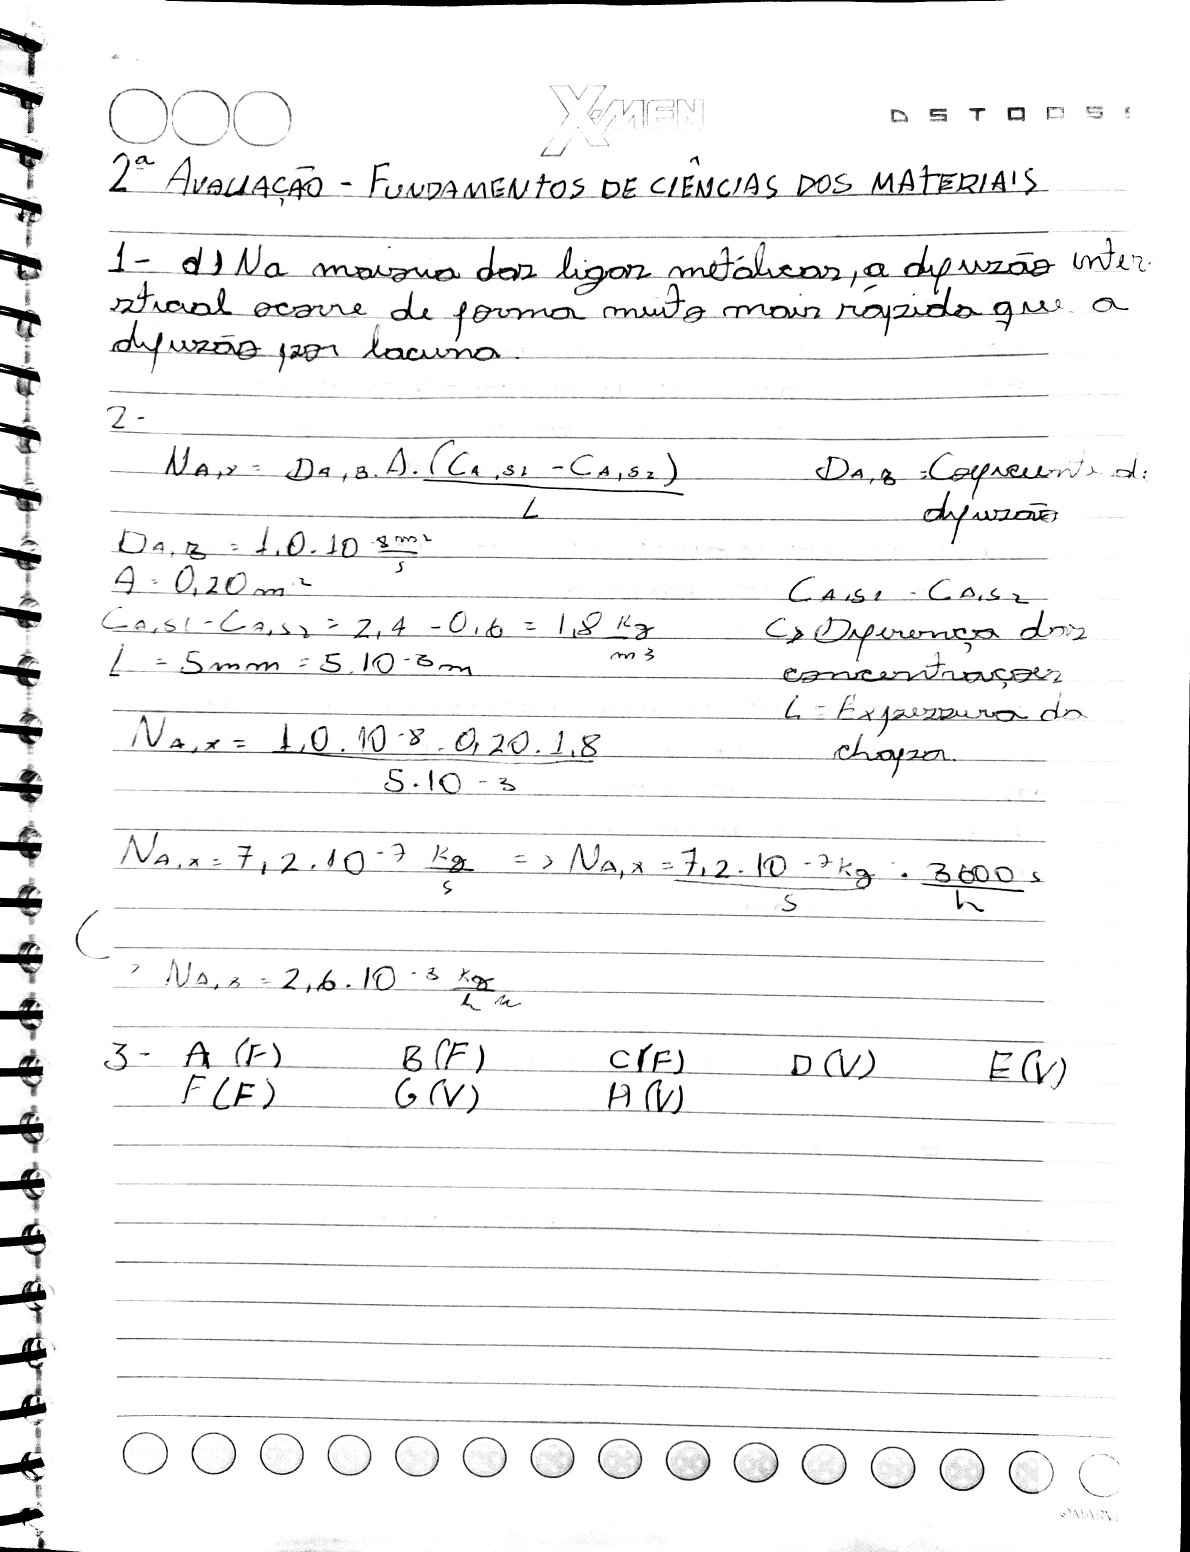 X-MEN
D S T Q Q S S
2ª AVALIAÇÃO - FUNDAMENTOS DE CIÊNCIAS DOS MATERIAIS
1- d) Na maioria das ligas metálicas, a difusão inter-
sticial ocorre de forma muito mais rápida que a
difusão por lacuna.
2-
NA,x = DA,B . A . (CA,S1 - CA,S2) / L
DA,B = Coeficiente de difusão
DA,B = 1,0.10-8 m²/s
A = 0,20 m²
CA,S1 - CA,S2 = 2,4 - 0,6 = 1,8 Kg/m3
L = 5mm = 5.10-3m
CA,S1 - CA,S2
↳ Diferença das
concentrações
L = Espessura da
chapa.
NA,x = 1,0.10-8 . 0,20 . 1,8 / 5.10-3
NA,x = 7,2.10-7 Kg/s => NA,x = 7,2.10-7Kg/s . 3600 s/h
> NA,x = 2,6.10-3 Kg/h
3- A (F) B (F) C (F) D (V) E (V)
F (F) G (V) H (V)